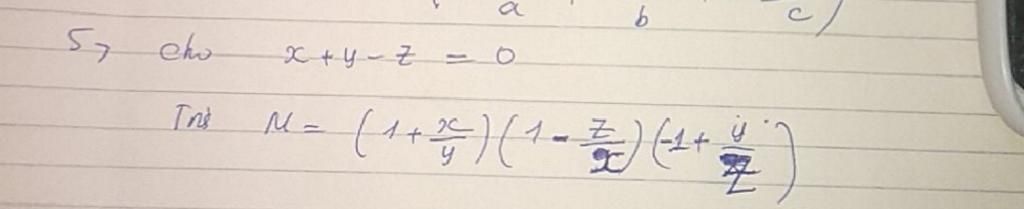 a b c)
5, cho x + y - z = 0
Tính M = (1 + x/y)(1 - z/x)(-1 + y/z)